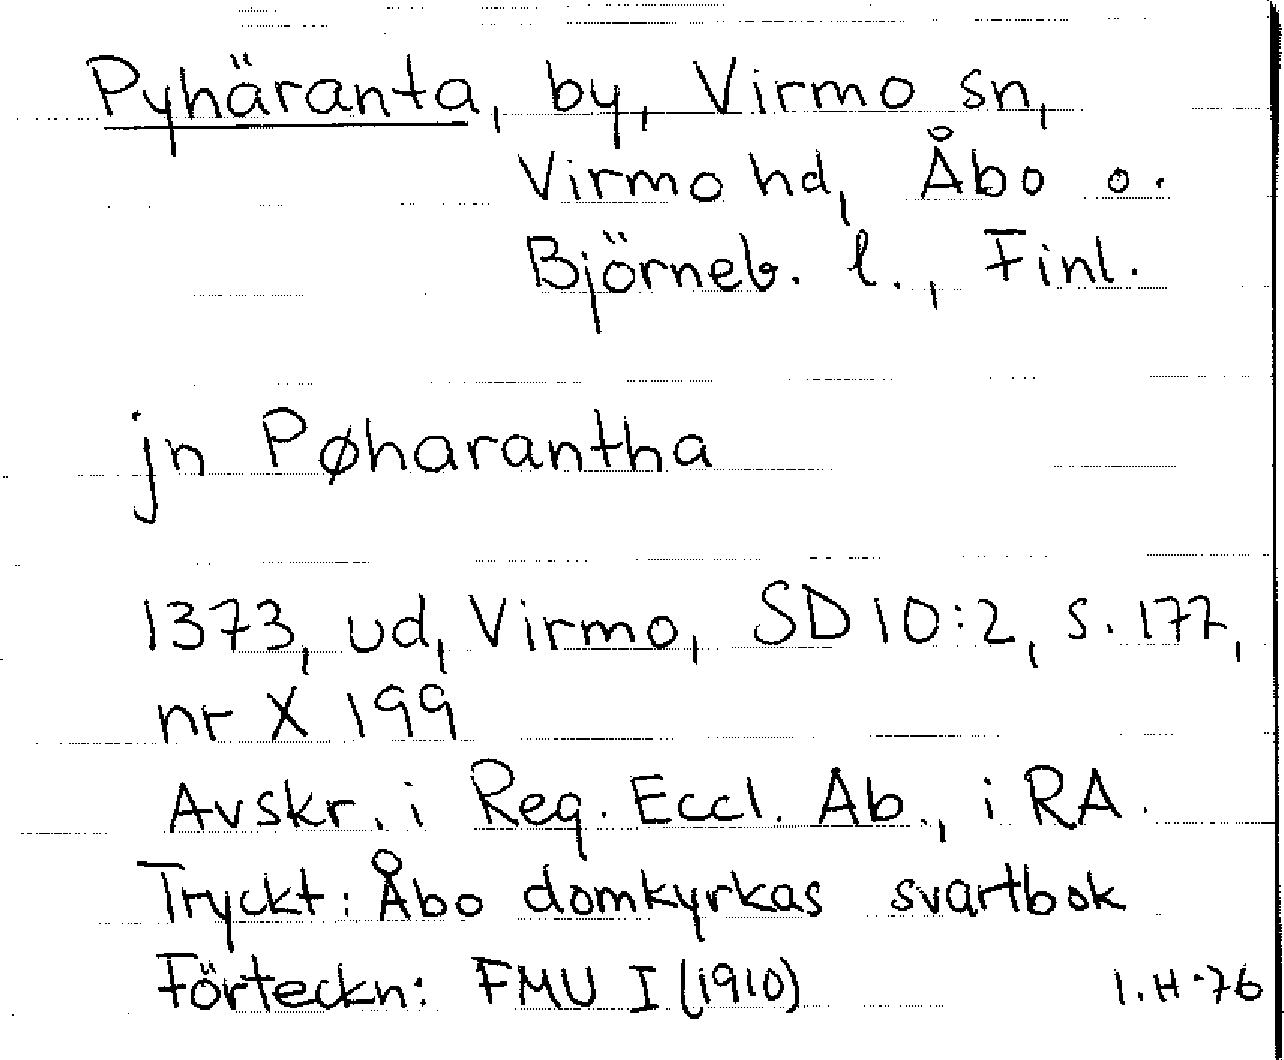 Pyhäranta, by, Virmo sn,
Virmo hd, Åbo o.
Björneb. l., Finl.
jn Pøharantha
1373, ud, Virmo, SD 10:2, s. 177,
nr X 199
Avskr. i Reg. Eccl. Ab., i RA.
Tryckt: Åbo domkyrkas svartbok
Förteckn: FMU I (1910)
I.H-76